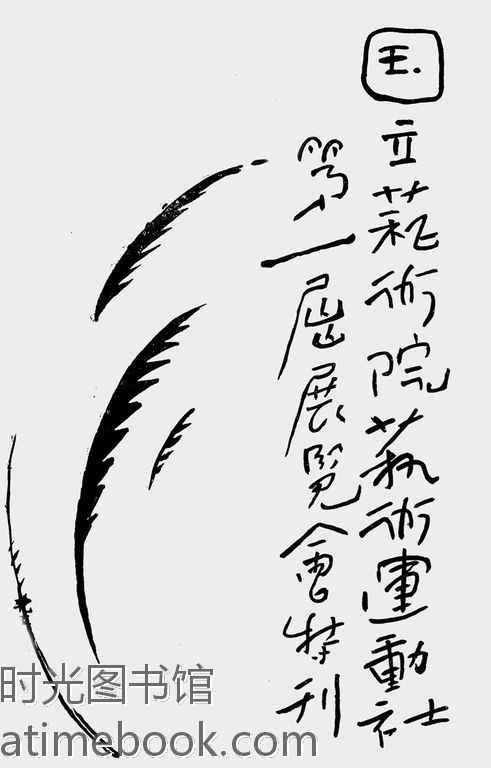 国立藝術院藝術運動社
第一屆展覽會特刊
时光图书馆
atimebook.com